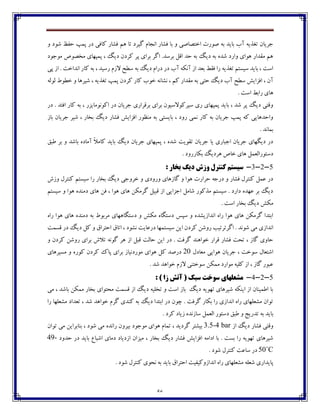 جریان تغذیه آب باید به صورت اختصاصی و با فشار انجام گیرد تا هم فشار کافی در پمپ حفظ شود و
هم مقدار هوای وارد شده به دیگ به حد اقل برسد. اگر برای پر کردن دیگ ، پمپهای مخصوص موجود
است ، باید سیستم تغذیه را فقط بعد از آنکه آب در درام دیگ به سطح لازم رسید ، به کار انداخت . از پی
آن ، افزایش سطح آب دیگ حتی به مقدار کم ، نشانه خوب کار کردن پمپ تغذیه ، شیرها و خطوط لوله
های رابط است .
وقتی دیگ پر شد ، باید پمپهای ری سیرکولاسیون برای برقراری جریان در اکونومایزر ، به کار افتد . در
واحدهایی که پمپ جریان به کار نمی رود ، بایستی به منظور افزایش فشار دیگ بخار ، شیر جریان باز
بماند .
در دیگهای جریان اجباری یا جریان تقویت شده ، پمپهای جریان دیگ باید کاملاً آماده باشد و بر طبق
دستورالعمل های خاص هردیگ بکاررود .
5–2–3– سیستم کنترل وزش دیگ بخار :
در عمل کنترل فشار و درجه حرارت هوا و گازهای ورودی و خروجی دیگ بخار را سیستم کنترل وزش
دیگ بر عهده دارد . سیستم مذکور شامل اجزایی از قبیل گرمکن های هوا ، فن های دمنده هوا و سیستم
مکش دیگ بخار است .
ابتدا گرمکن های هوا راه اندازیشده و سپس دستگاه مکش و دستگاههای مربوط به دمنده های هوا راه
اندازی می شوند . اگرترتیب روشن کردن این سیستمها درعایت نشود ، اتاق احتراق و کل دیگ در قسمت
حاوی گاز ، تحت فشار قرار خواهند گرفت . در این حالت قبل از هر گونه تلاش برای روشن کردن و
اشتعال سوخت ، جریان هوایی معادل 20 درصد کل هوای موردنیاز برای پاک کردن کوره و مسیرهای
عبور گاز ، از کلیه موارد ممکن سوختنی لازم خواهد شد .
5–2–4– مشعلهای سوخت سبک ( آتش زا ) :
با اطمینان از اینکه شیرهای تهویه دیگ باز است و تخلیه دیگ از قسمت محتوای بخار ممکن باشد ، می
توان مشعلهای راه اندازی را بکار گرفت . چون در ابتدا دیگ به کندی گرم خواهد شد ، تعداد مشعلها را
باید به تدریج و طبق دستور العمل سازنده زیاد کرد .
وقتی فشار دیگ از 3.5-4 bar بیشتر گردید ، تمام هوای موجود بیرون رانده می شود ، بنابراین می توان
شیرهای تهویه را بست . با ادامه افزایش فشار دیگ بخار ، میزان ازدیاد دمای اشباع باید در حدود 49-
50°C در ساعت کنترل شود .
پایداری شعله مشعلهای راه اندازوکیفیت احتراق باید به نحوی کنترل شود .